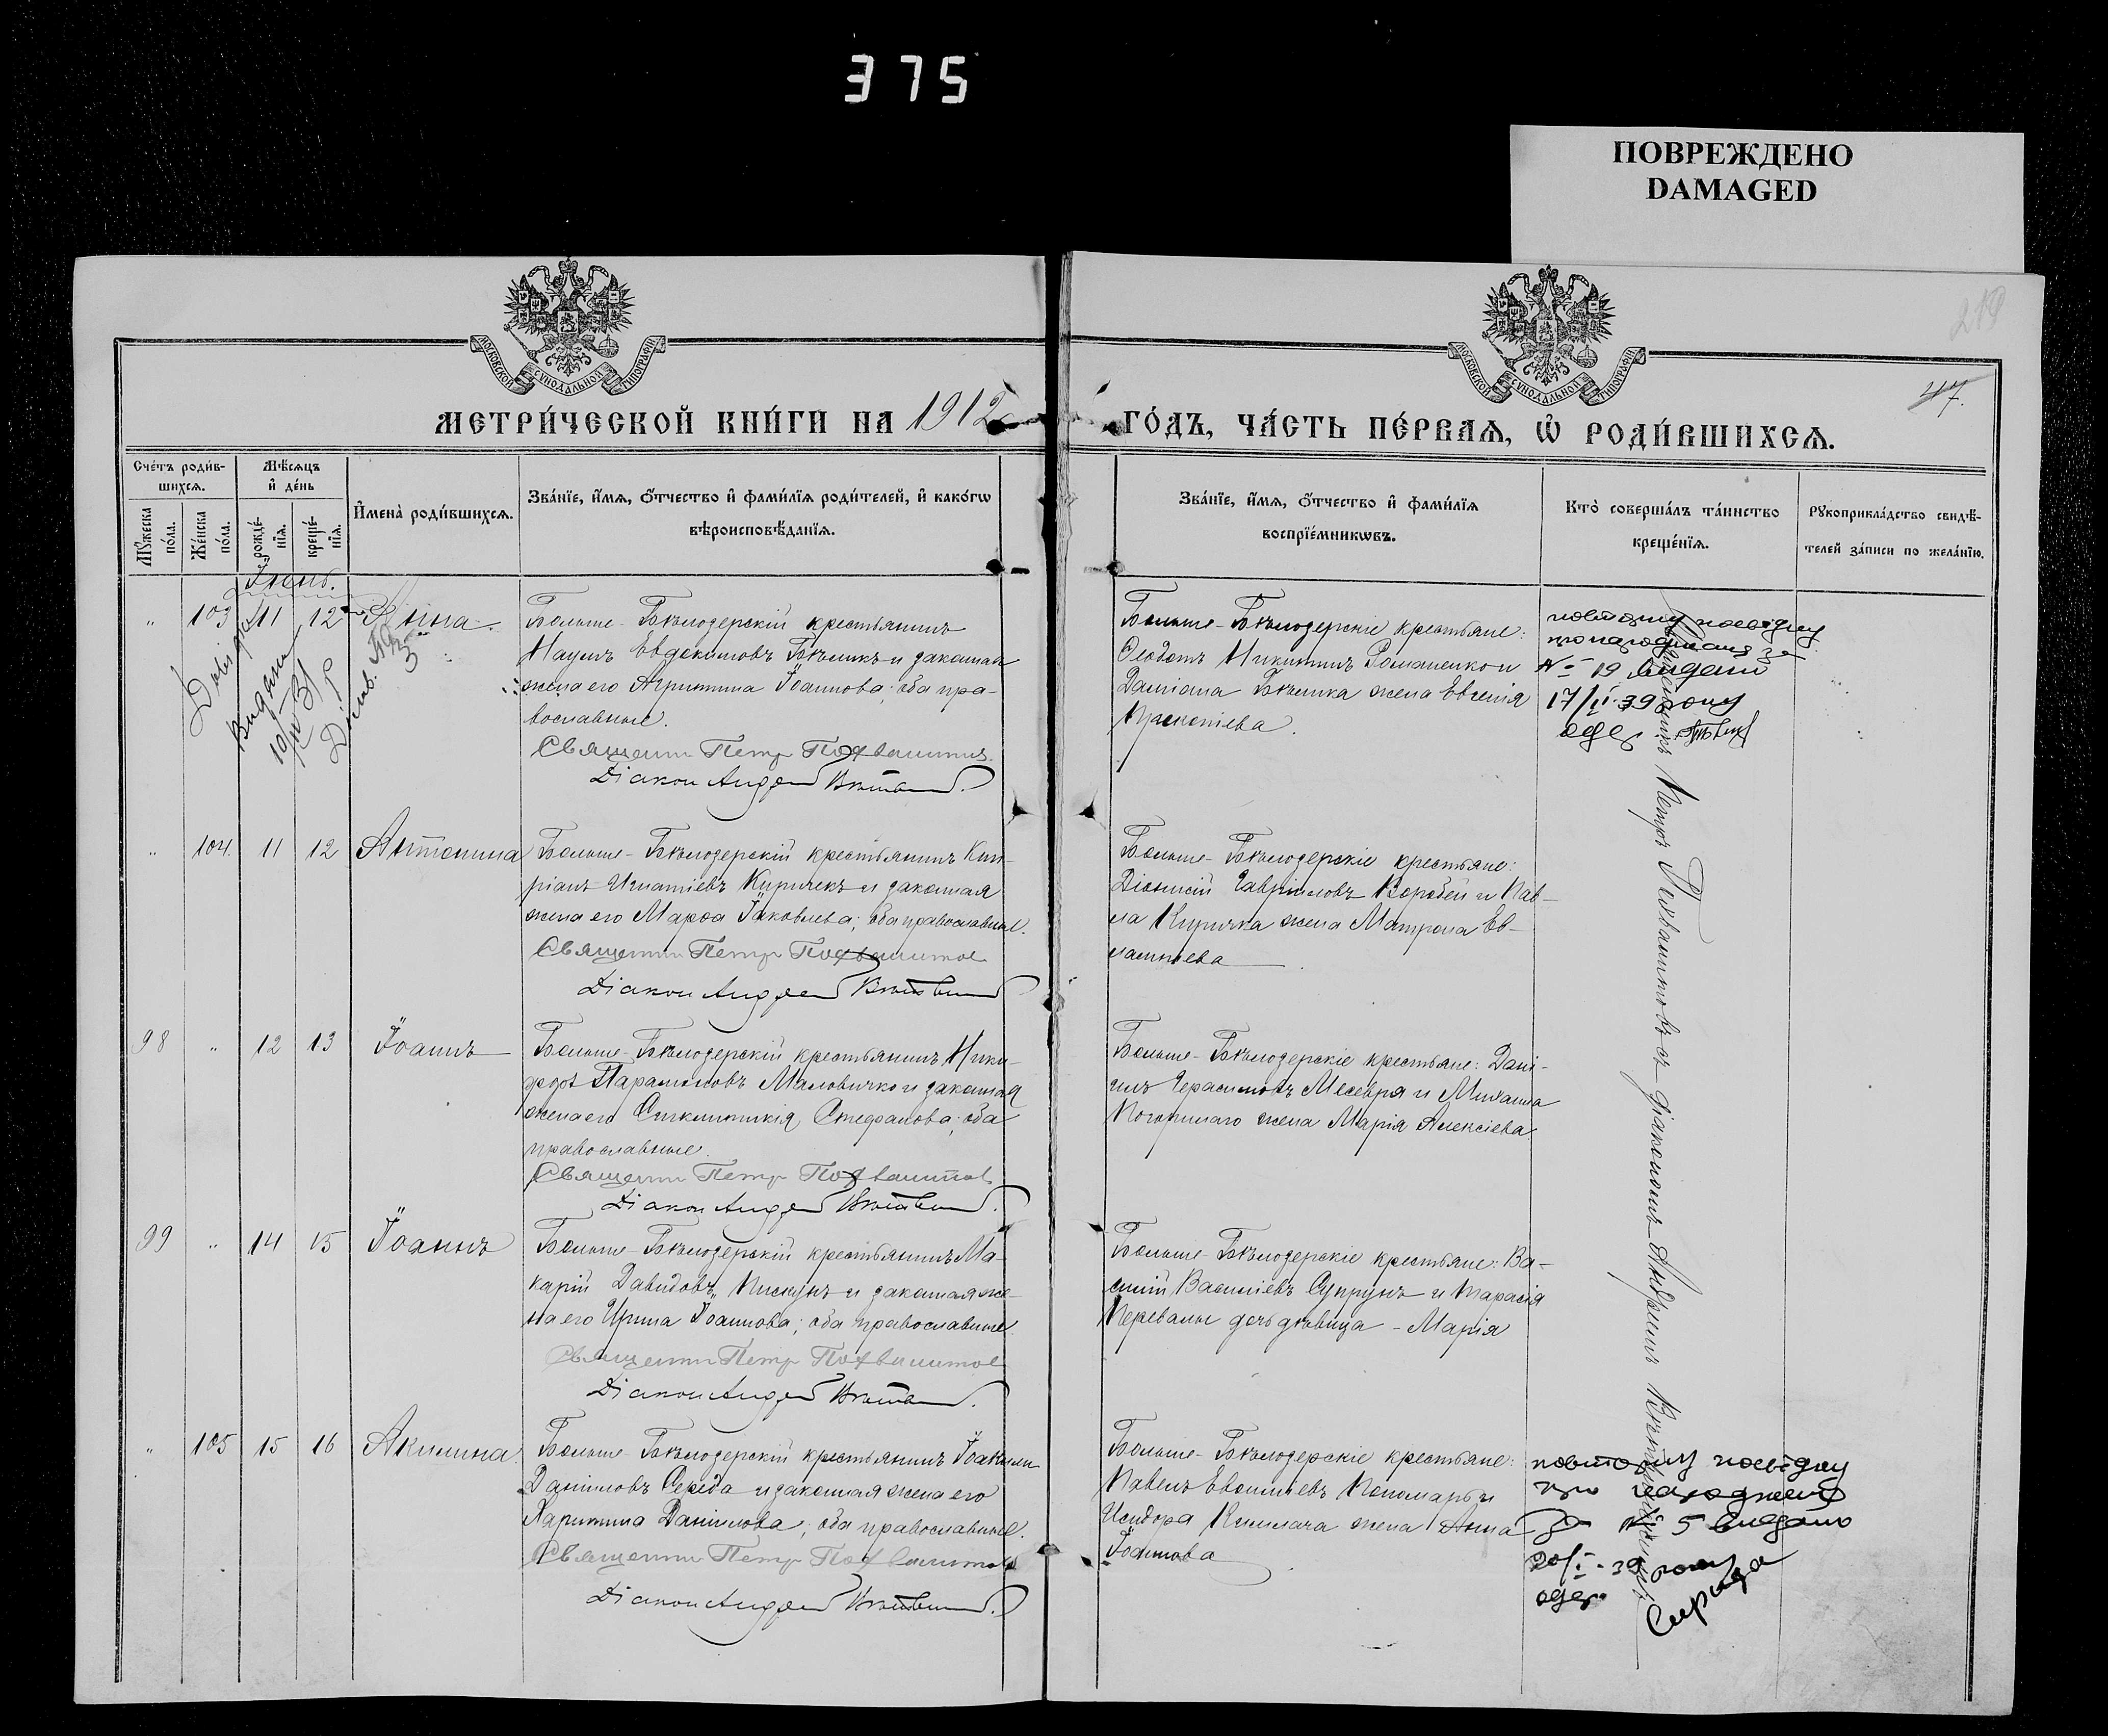 375
ПОВРЕЖДЕНО
DAMAGED
МОСКОВСКОЙ СѴНОДАЛЬНОЙ ТИПОГРАФІИ
МОСКОВСКОЙ СѴНОДАЛЬНОЙ ТИПОГРАФІИ
219
47.
МЕТРИ́ЧЕСКОЙ КНИ́ГИ НА 1912
ГО́ДЪ, ЧА́СТЬ ПЕ́РВАѦ, Ѡ҆ РОДИ́ВШИХСѦ.
Сче́тъ роди́в-
шихсѧ.
Мѣ́сѧцъ
и҆ де́нь
Мꙋ́жеска
по́ла.
Же́нска
по́ла.
рожде́-
нїѧ.
креще́-
нїѧ.
И҆мена̀ роди́вшихсѧ.
Зва́нїе, и҆́мѧ, ѻ҆́тчество и҆ фами́лїѧ роди́телей, и҆ како́гѡ
вѣроисповѣ́данїѧ.
Зва́нїе, и҆́мѧ, ѻ҆́тчество и҆ фами́лїѧ
воспрїе́мникѡвъ.
Кто̀ соверша́лъ та́инство
креще́нїѧ.
Рꙋкоприкла́дство свидѣ́-
телей за́писи по жела́нїю.
Іюнь.
" 103 11 12
Больше-Бѣлозерскій крестьянинъ
Наумъ Евдокимовъ Бѣликъ и законная
жена его Агрипина Іоаннова; оба пра-
вославные.
Священ Петр Похвалитов
Діакон Андрей
Больше-Бѣлозерскіе крестьяне:
Ѳеодотъ Никитинъ Романенко и
Даміана Бѣлика жена Евгенія
Прокопіева.
повторну посвідку
про народження за
№ 19 видано
17/II.39 року
" 104. 11 12 Антонина
Больше-Бѣлозерскій крестьянинъ Кип-
ріанъ Игнатіевъ Куричекъ и законная
жена его Марѳа Іаковлева; оба православные.
Священ Петр Похвалитов
Діакон Андрей
Больше-Бѣлозерскіе крестьяне:
Діонисій Гавріиловъ Воробей и Пав-
ла Куричка жена Матрона Ев-
лампіева
98 " 12 13 Іоаннъ
Больше-Бѣлозерскій крестьянинъ Ники-
форъ Парамоновъ Маловичко и законная
жена его Синклитикія Стефанова; оба
православные.
Священ Петр Похвалитов
Діакон Андрей
Больше-Бѣлозерскіе крестьяне: Дані-
илъ Герасимовъ Месевря и Михаила
Погорилаго жена Марія Алексіева.
99 " 14 15 Іоаннъ
Больше-Бѣлозерскій крестьянинъ Ма-
карій Давидовъ Пискунъ и законная же-
на его Ирина Іоаннова; оба православные.
Священ Петр Похвалитов
Діакон Андрей
Больше-Бѣлозерскіе крестьяне: Ва-
силій Василіевъ Супрунъ и Тарасія
Перевалы дочь дѣвица - Марія
" 105 15 16 Акилина.
Больше-Бѣлозерскій крестьянинъ Іоакимъ
Даніиловъ Середа и законная жена его
Харитина Даніилова; оба православные.
Священ Петр Похвалитов
Діакон Андрей
Больше-Бѣлозерскіе крестьяне:
Павелъ Евѳиміевъ Пономарь и
Исидора жена Анна
Іоаннова
повторну посвідку
про народжен
за № 5 видано
20/I.39 року
Середа
Священникъ Петръ Похвалитовъ съ діакономъ Андреемъ